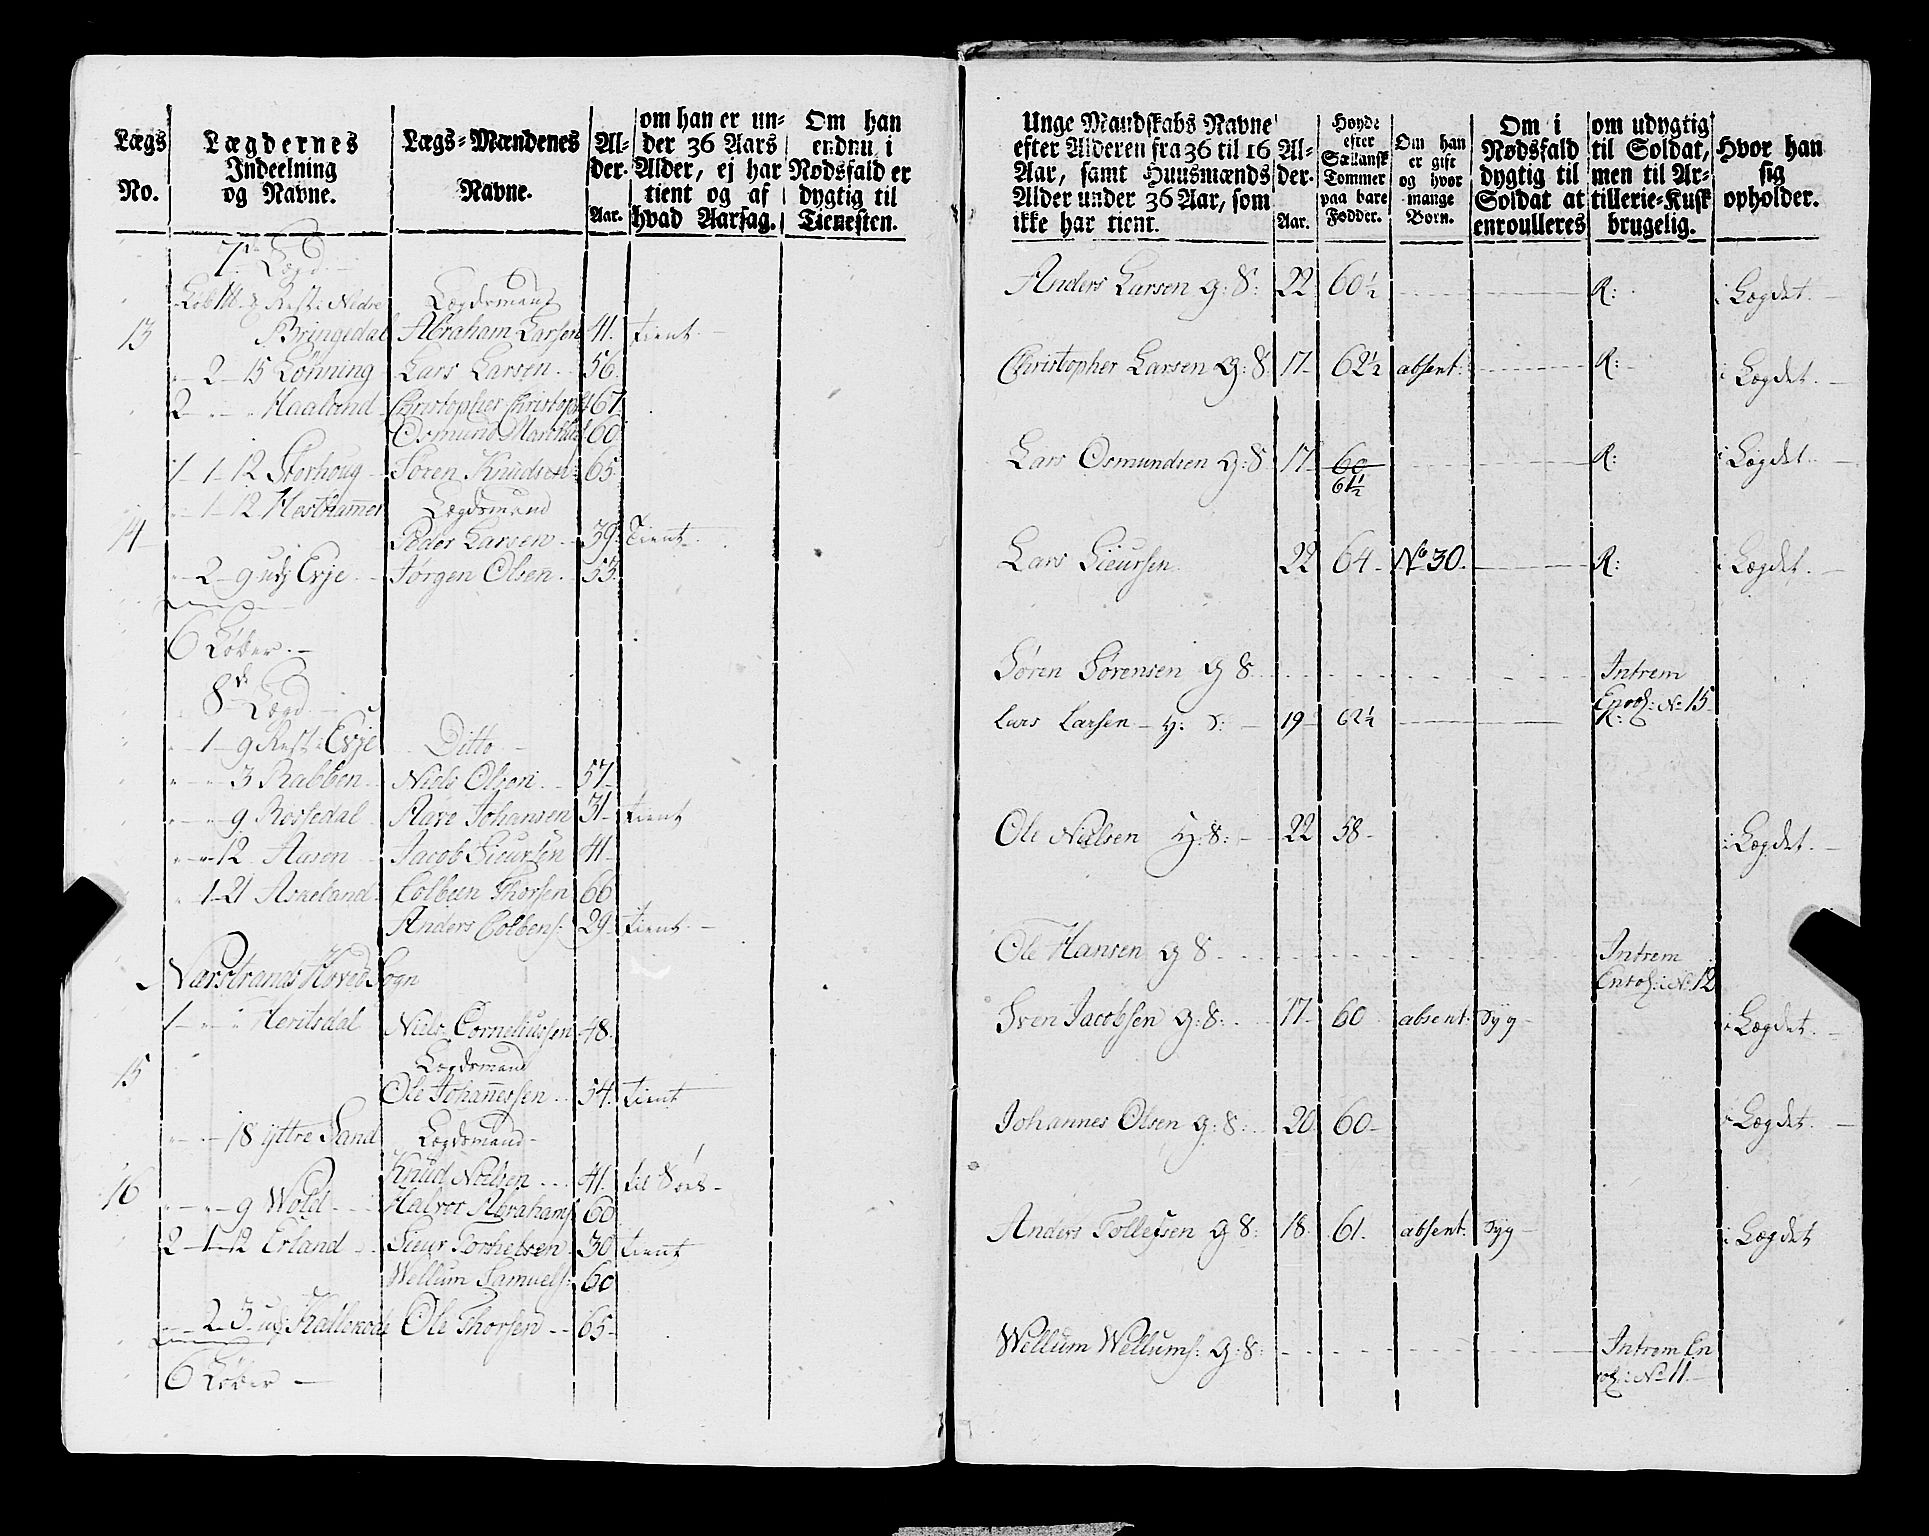 Lægs No.
Lægdernes Indeelning og Navne.
Lægs-Mændenes Navne.
Al-der. Aar.
om han er un-der 36 Aars Alder, ej har tient og af hvad Aarsag.
Om han endnu i Nødsfald er dygtig til Tienesten.
7de Lægd
Reste Nedre Lægdsmand
13 Bringedal Abraham Larsen 41. tient
2 - 15 Lønning Lars Larsen 56.
2 Haaland Christopher Christoph 67
Osmund 60
1 - 1 - 12 Storhoug Søren Knudsen 65
1 - 12 Hesthammer Lægdsmand
14 Peder Larsen 39. Tient
2 - 9 udj Erje Jørgen Olsen 53.
6 Løber
8de Lægd
1 - 9 Rest Erje Ditto
3 Rabben Niels Olsen 57
9 Rossedal Aave Johansen 31 tient
12 Aasen Jacob Sieursen 41
1 - 21 Askeland Colbeen Thorsen 66
Anders Colbens: 29 tient
Nærstrands Hoved Sogn
1 Heritsdal Niels Corneliussen 48.
Lægdsmand
15 Ole Johannessen 54. Tient
18 yttre Sand Lægdsmand
16 Knud Nielsen 41.
9 Wold Halvor Abrahams 60
2 - 1 - 12 Erland Sieur Torkelsen 30 tient
Wellum Samuels: 60
2 - 3 udj Ole Thorsen 65
6 Løber
Unge Mandskabs Navne efter Alderen fra 36 til 16 Aar, samt Huusmænds Alder under 36 Aar, som ikke har tient.
Al-der. Aar.
Høyde efter Sællansk Tommer paa bare Fødder.
Om han er gift og hvor mange Børn.
Om i Nødsfald dygtig til Soldat at enroulleres
om udygtig til Soldat, men til Ar-tillerie-Kusk brugelig.
Hvor han sig opholder.
Anders Larsen g: S: 22 60½ R: i Lægdet.
Christopher Larsen g: S 17 62½ absent. R: i Lægdet.
Lars Osmundsen g: S 17 60 R: i Lægdet.
61½
Lars Sieursen 22 64 No 30. R: i Lægdet.
Søren Sørensen g S Intrem
Enroll: No 15
Lars Larsen g: S: 19 62½ R:
Ole Nielsen g: S: 22 58 i Lægdet.
Ole Hansen g S Intrem
Enrol: No 12
Sven Jacobsen g: S: 17 60 absent. syg i Lægdet.
Johannes Olsen g: S: 20 60 i Lægdet.
Anders Tollefsen g S: 18 61. absent. syg i Lægdet
Wellum Wellums: g: S: Intrem En
rol: No 11.